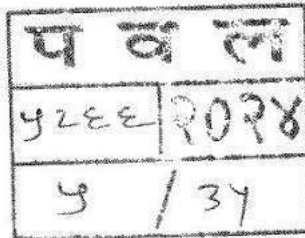 प व ल
५२६६ | २०२४
५ / ३५